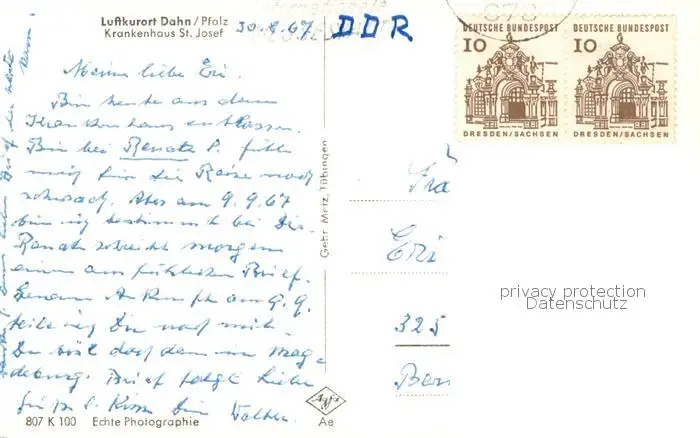 Luftkurort Dahn / Pfalz
Krankenhaus St. Josef
30.8.67
DDR
Meine liebe Eri.
Bin heute aus dem
Krankenhaus entlassen.
Bin bei Renate P. fühle
mich für die Reise noch
schwach. Aber am 9.9.67
bin ich bestimmt bei Dir.
Renate schreibt morgen
einen ausführlichen Brief.
Genaue Ankunft am 9.9.
teile ich Dir noch mit.
Du bist doch dann in Mag-
deburg. Brief folgt Liebe
Grüße Kuss Dein Walter.
807 K 100 Echte Photographie
Gebr. Metz, Tübingen
Agfa
Ae
DEUTSCHE BUNDESPOST
10
DRESDEN/SACHSEN
DEUTSCHE BUNDESPOST
10
DRESDEN/SACHSEN
Fra
Eri
325
Ber
privacy protection
Datenschutz